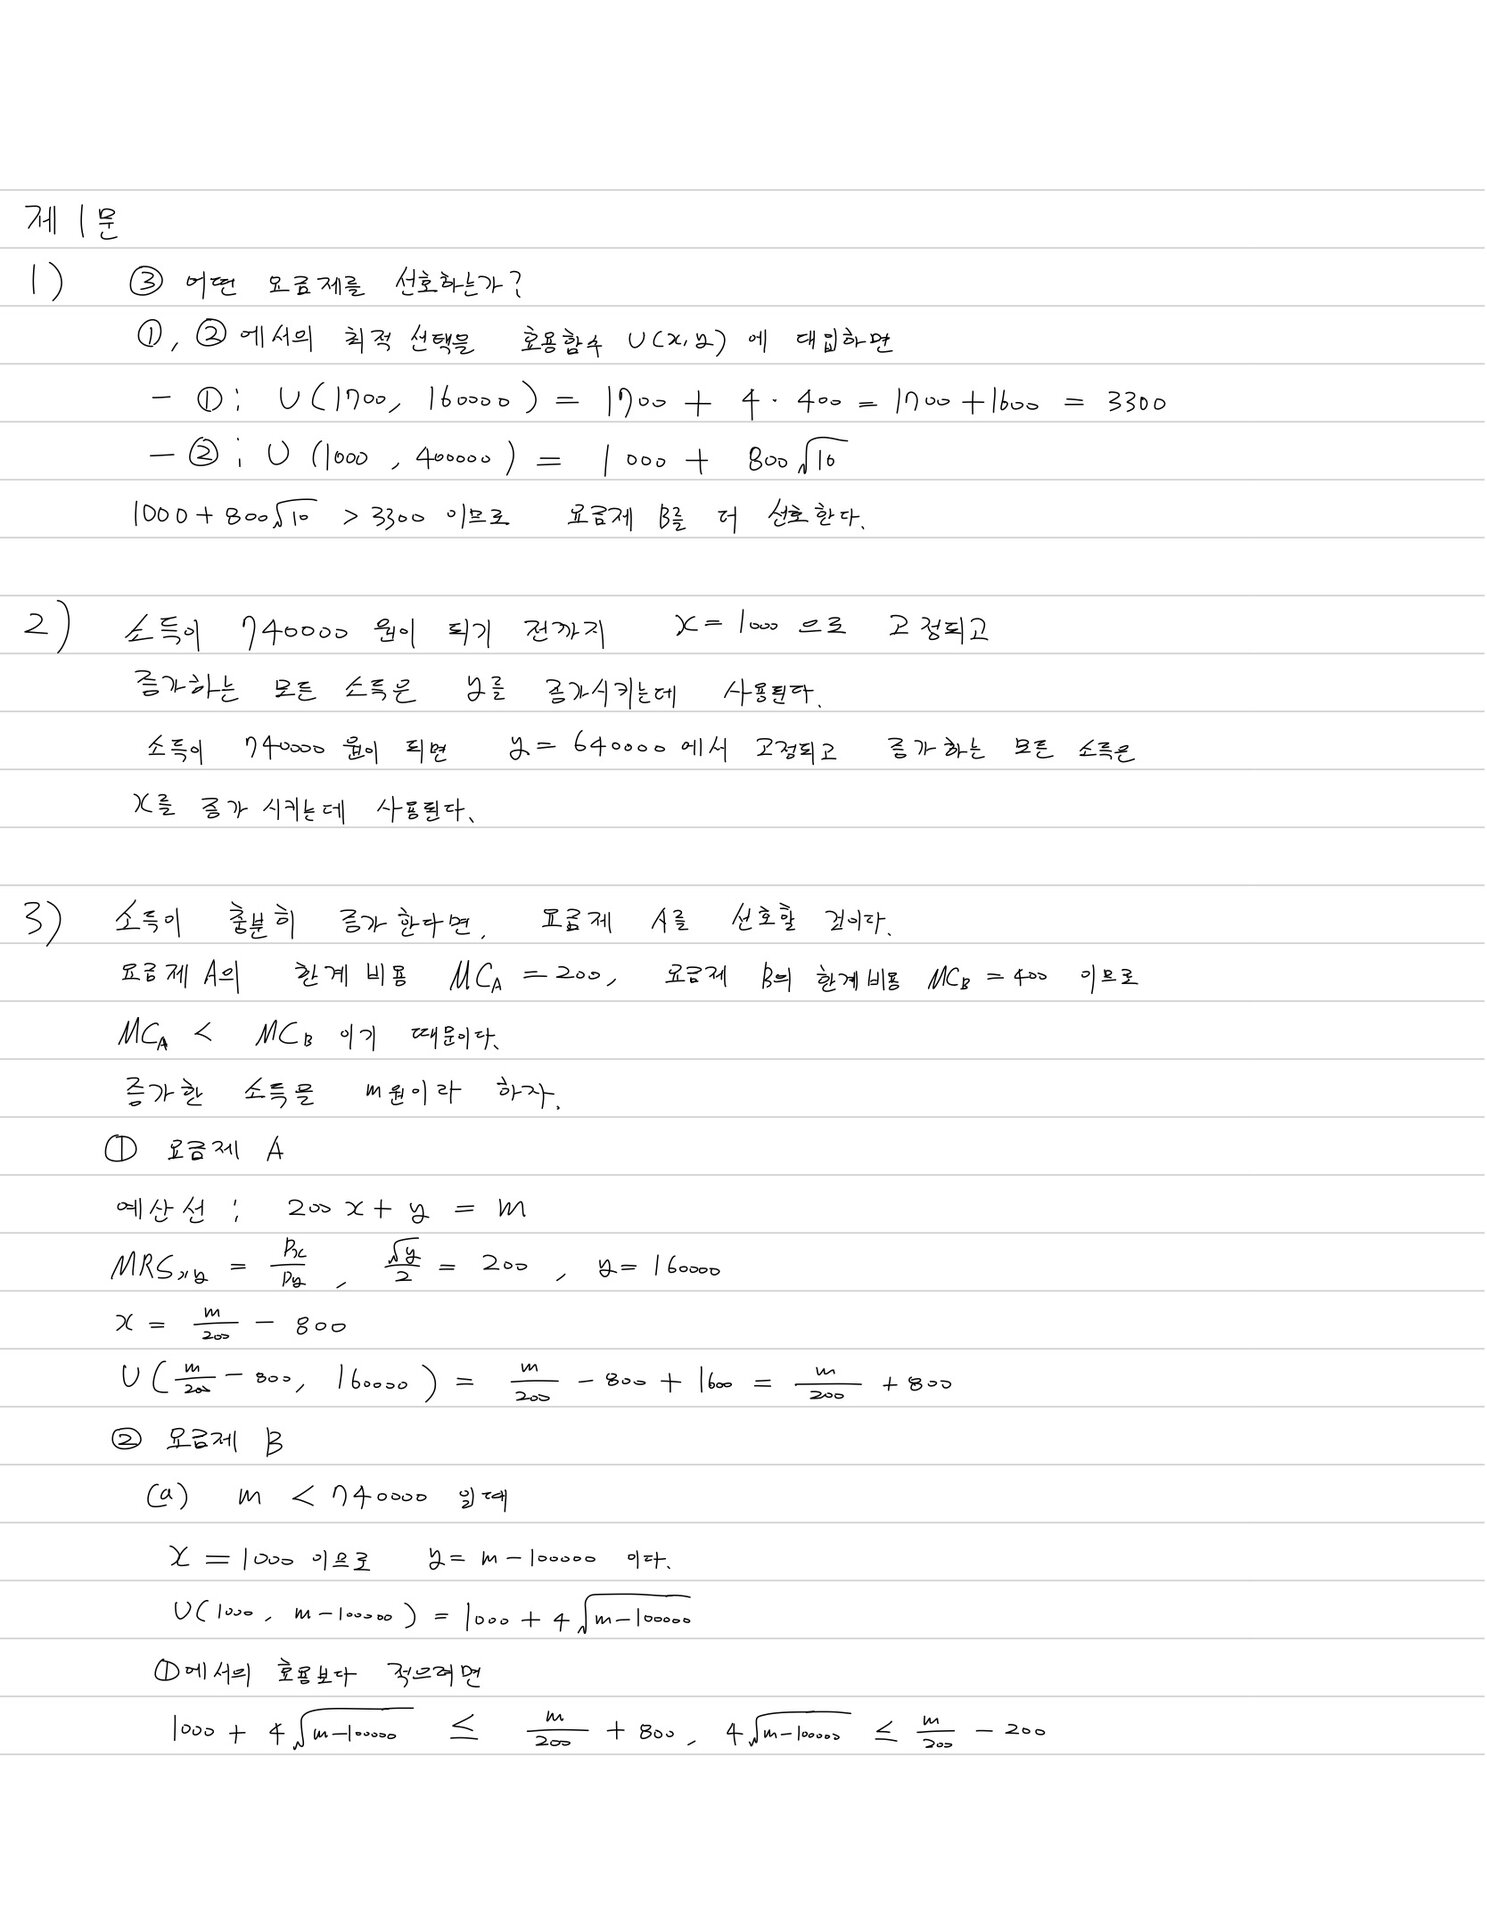 제1문
1) ③ 어떤 요금제를 선호하는가?
①, ②에서의 최적 선택을 효용함수 U(x,y)에 대입하면
- ①: U(1700, 160000) = 1700 + 4·400 = 1700+1600 = 3300
- ②: U(1000, 400000) = 1000 + 800√10
1000+800√10 > 3300 이므로 요금제 B를 더 선호한다.
2) 소득이 740000원이 되기 전까지 x=1000으로 고정되고
증가하는 모든 소득은 y를 증가시키는데 사용된다.
소득이 740000원이 되면 y=640000에서 고정되고 증가하는 모든 소득은
x를 증가시키는데 사용된다.
3) 소득이 충분히 증가한다면, 요금제 A를 선호할 것이다.
요금제 A의 한계비용 MC_A = 200, 요금제 B의 한계비용 MC_B = 400 이므로
MC_A < MC_B 이기 때문이다.
증가한 소득을 m원이라 하자.
① 요금제 A
예산선: 200x+y = m
MRS_xy = Px/Py, √y/2 = 200, y=160000
x = m/200 - 800
U(m/200 - 800, 160000) = m/200 - 800 + 1600 = m/200 + 800
② 요금제 B
(a) m < 740000 일때
x = 1000 이므로 y = m-100000 이다.
U(1000, m-100000) = 1000 + 4√(m-100000)
①에서의 효용보다 적으려면
1000 + 4√(m-100000) ≤ m/200 + 800, 4√(m-100000) ≤ m/200 - 200